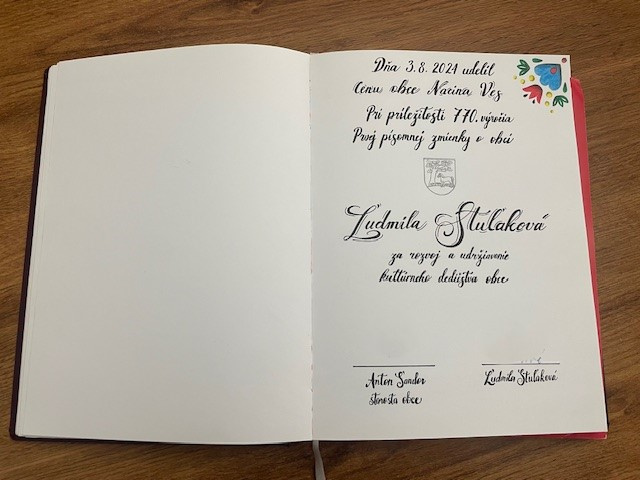 Dňa 3. 8. 2024 udelil
Cenu obce Nacina Ves
Pri príležitosti 770. výročia
Prvej písomnej zmienky o obci
Ľudmila Stuľaková
za rozvoj a udržiavanie
kultúrneho dedičstva obce
Anton Šandor
starosta obce
Ľudmila Stuľaková